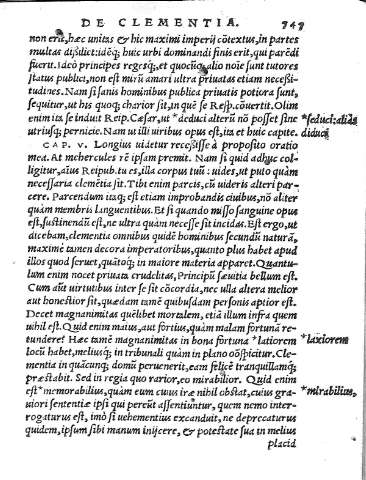 DE CLEMENTIA. 747
non erit, hæc unitas & hic maximi imperij cõtextus, in partes
multas dissiliet: idẽq; huic urbi dominandi finis erit, qui parẽdi
fuerit. Ideo principes regesq; et quocũq; alio noĩe sunt tutores
status publici, non est mirũ amari ultra priuatas etiam necessi-
tudines. Nam si sanis hominibus publica priuatis potiora sunt,
sequitur, ut his quoq; charior sit, in quẽ se Resp. cõuertit. Olim
enim ita se induit Reip. Cæsar, ut *deduci alterũ nõ posset sine *seduci: aliàs
utriusq; pernicie. Nam ut illi uiribus opus est, ita et huic capite. diduci
CAP. V. Longius uidetur recessisse à proposito oratio
mea. At mehercules rẽ ipsam premit. Nam si quid adhuc col-
ligitur, aĩus Reipub. tu es, illa corpus tuũ: uides, ut puto quàm
necessaria clemẽtia sit. Tibi enim parcis, cũ uideris alteri par-
cere. Parcendum itaq; est etiam improbandis ciuibus, nõ aliter
quàm membris languentibus. Et si quando misso sanguine opus
est, sustinendũ est, ne ultra quàm necesse sit incidas. Est ergo, ut
dicebam, clementia omnibus quidẽ hominibus secundũ naturã,
maximè tamen decora imperatoribus, quanto plus habet apud
illos quod seruet, quãtoq; in maiore materia apparet. Quantu-
lum enim nocet priuata crudelitas, Principũ sæuitia bellum est.
Cum aũt uirtutibus inter se sit cõcordia, nec ulla altera melior
aut honestior sit, quædam tamẽ quibusdam personis aptior est.
Decet magnanimitas quẽlibet mortalem, etiã illum infra quem
nihil est. Quid enim maius, aut fortius, quàm malam fortunã re-
tundere? Hæc tamẽ magnanimitas in bona fortuna *latiorem *laxiorem
locũ habet, meliusq; in tribunali quàm in plano cõspicitur. Cle-
mentia in quãcunq; domũ peruenerit, eam felicẽ tranquillamq;
præstabit. Sed in regia quo rarior, eo mirabilior. Quid enim
est *memorabilius, quàm eum cuius iræ nihil obstat, cuius gra- *mirabilius,
uiori sententiæ ipsi qui pereũt assentiuntur, quem nemo inter-
rogaturus est, imò si uehementius excanduit, ne deprecaturus
quidem, ipsum sibi manum inijcere, & potestate sua in melius
placid